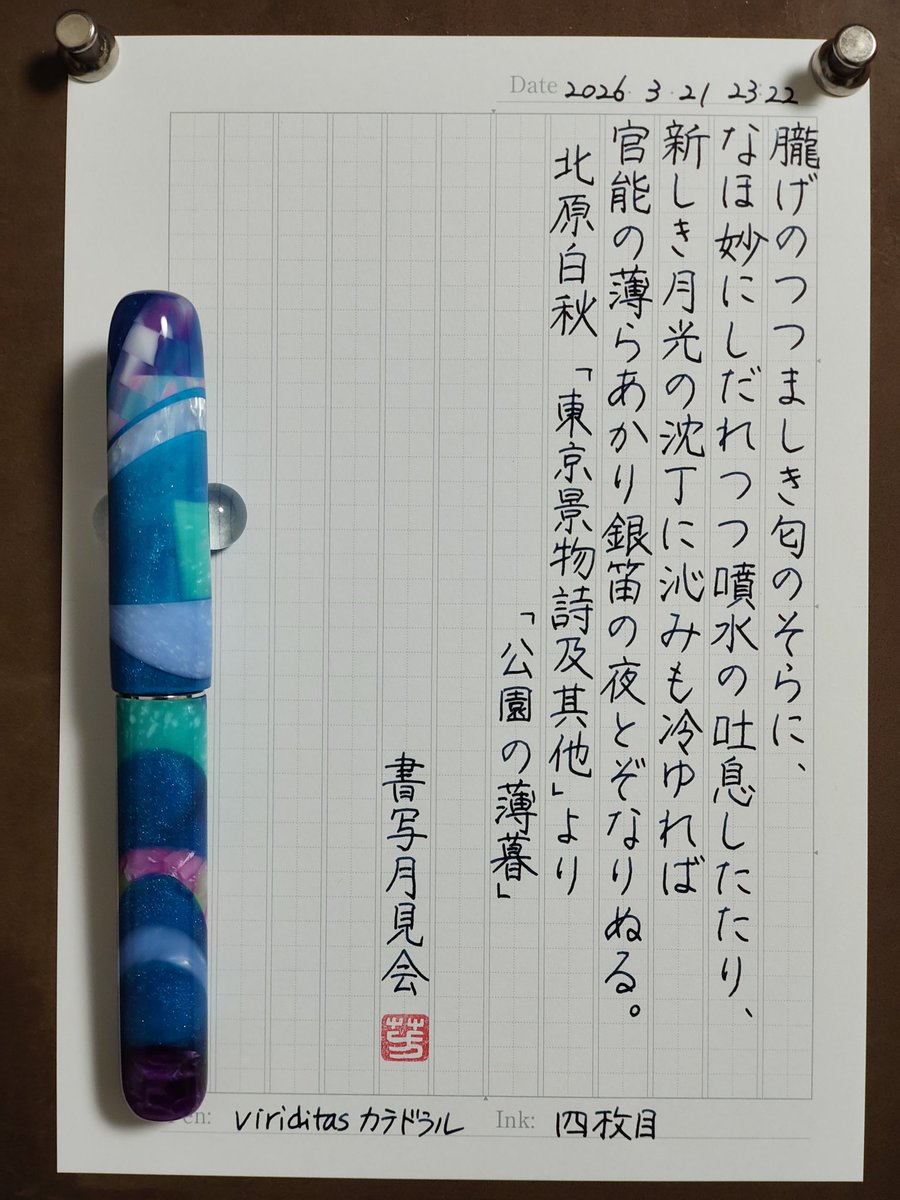 Date 2026 3 21 23:22
朧げのつつましき匂のそらに、
なほ妙にしだれつつ噴水の吐息したたり、
新しき月光の沈丁に沁みも冷ゆれば
官能の薄らあかり銀笛の夜とぞなりぬる。
北原白秋「東京景物詩及其他」より
「公園の薄暮」
書写月見会
芳
Pen: viriditas カテドラル
Ink: 四枚目